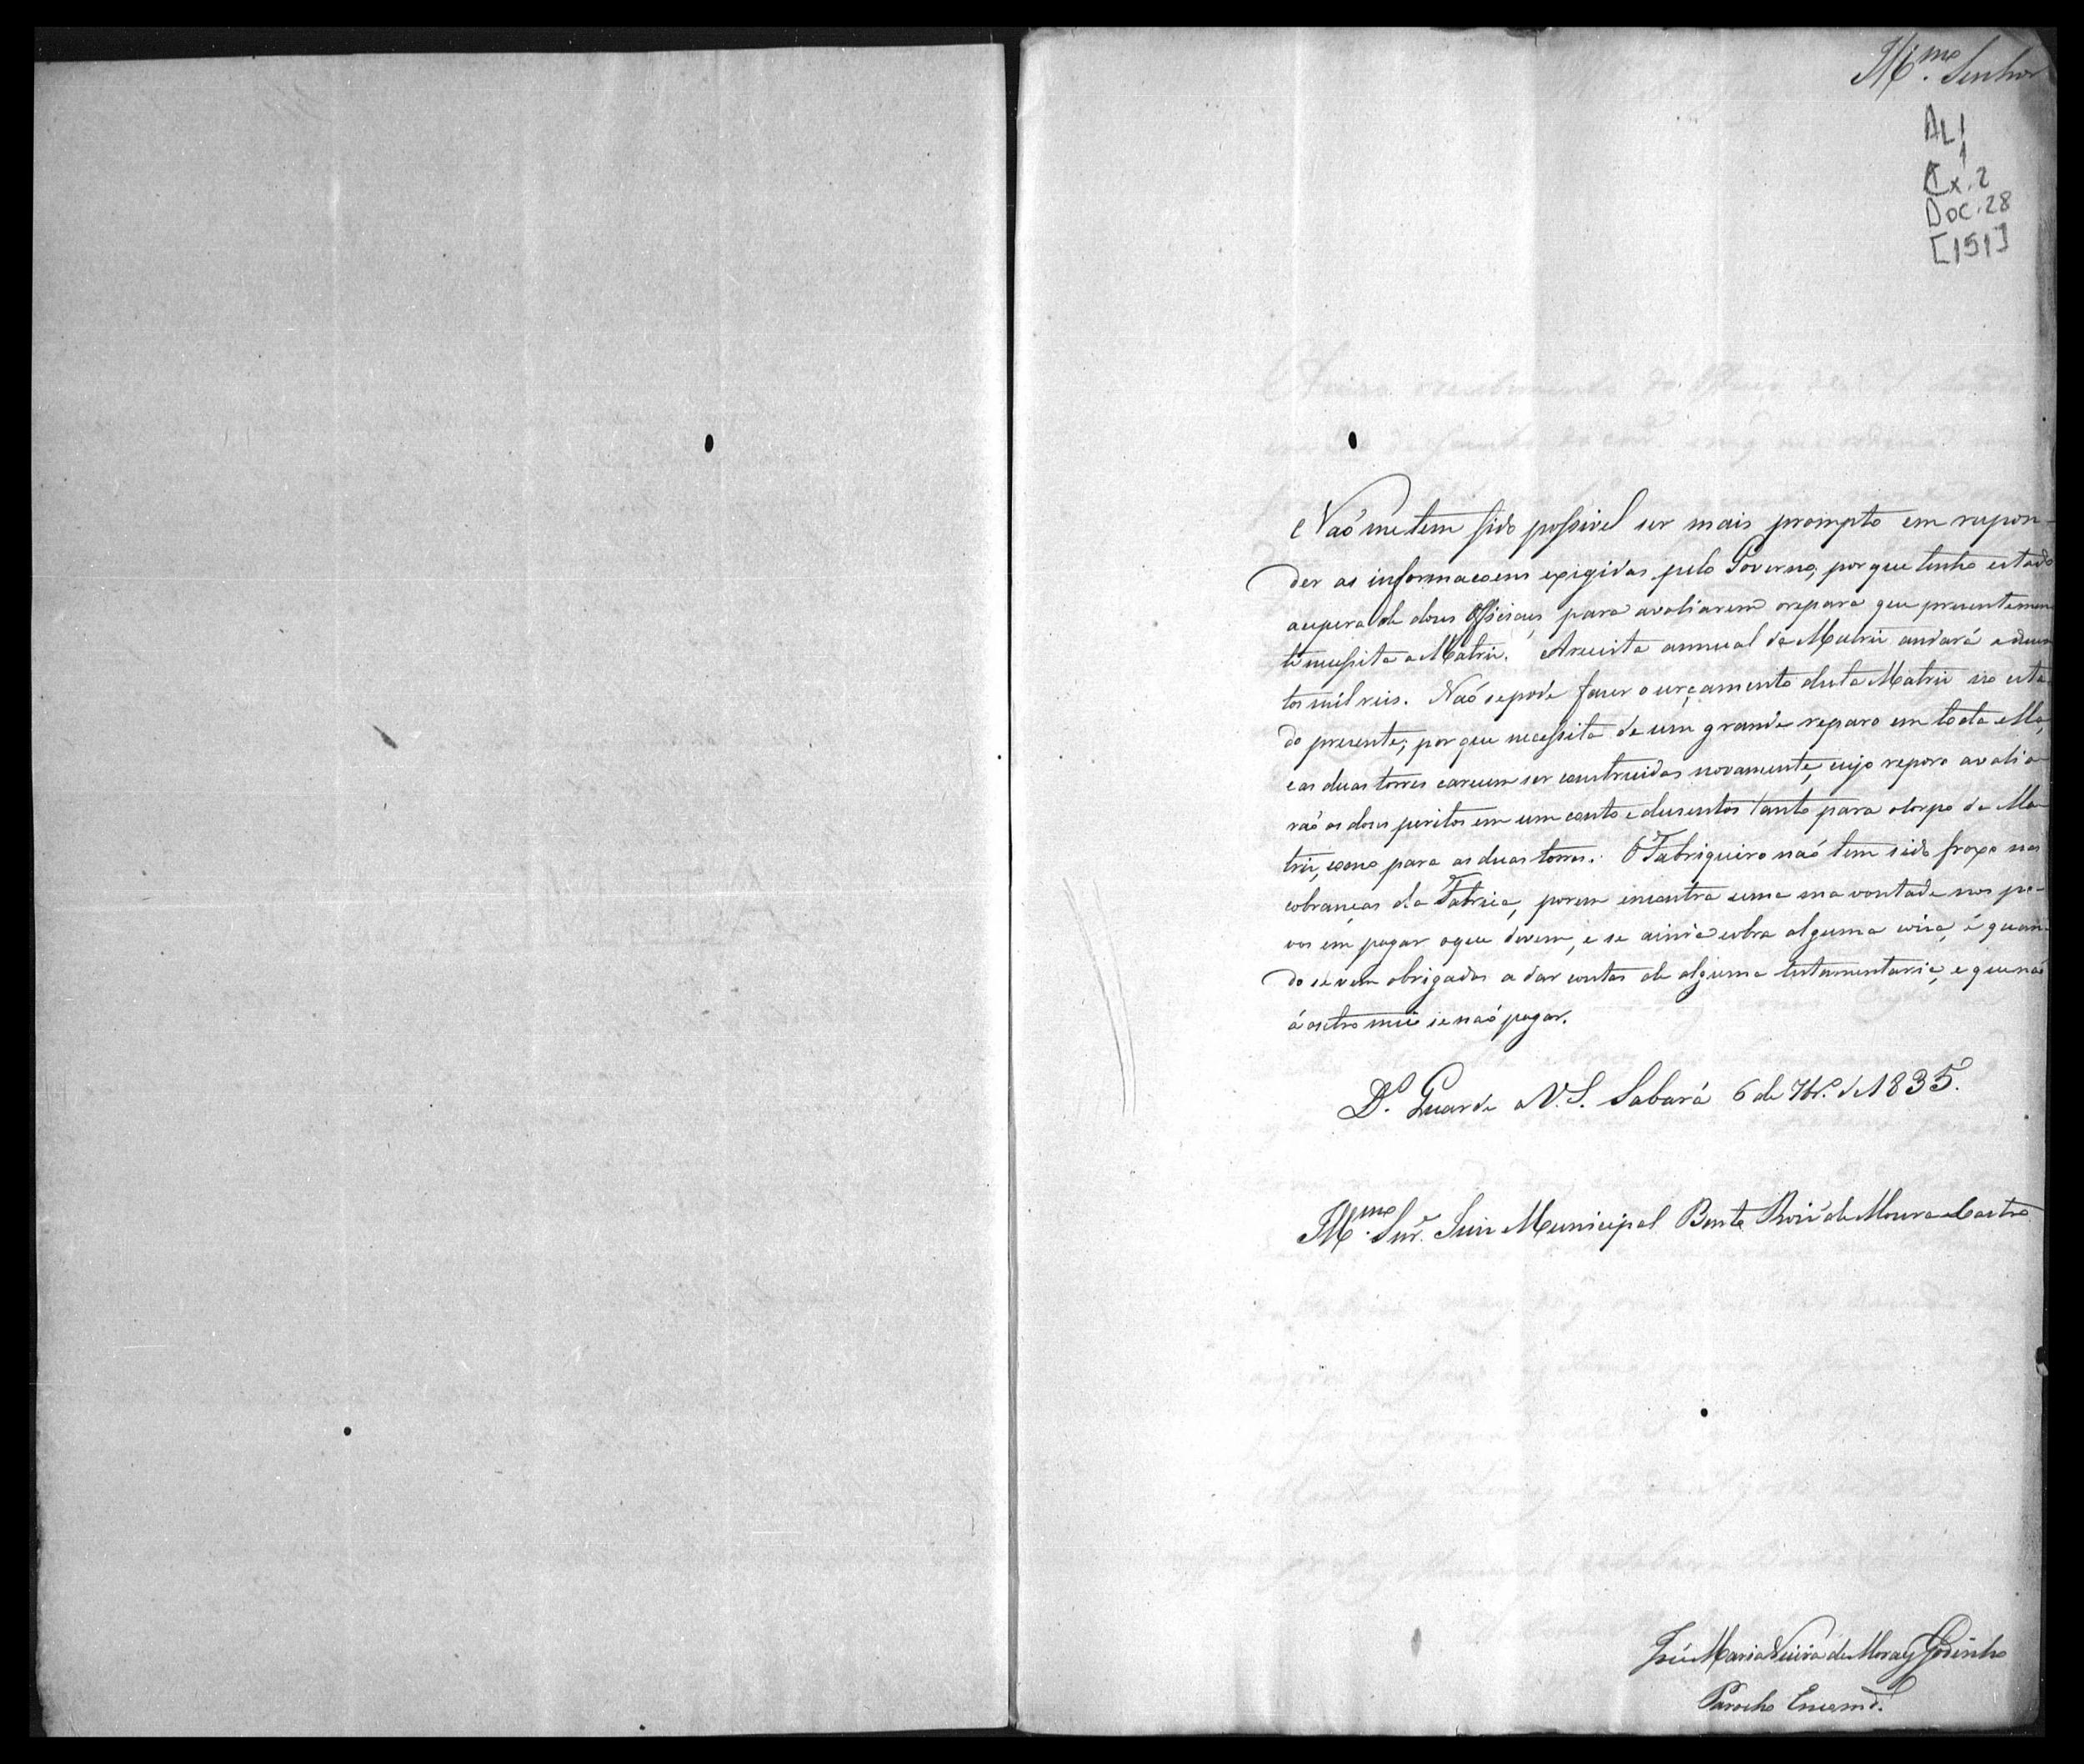 Illmo. Senhor
AL1
1
Cx. 2
Doc. 28
[151]
Naõ me tem sido possivel ser mais prompto em respon-
der as informacoens exigidas pelo Governo, por que tenho estado
a espera de dous Officiaes para avaliarem o reparo que presentemen
te necessita a Matriz. A receita annual da Matriz andará a duzen
tos mil reis. Naõ se pode fazer o urçamento desta Matriz no esta-
do presente; por que necessita de um grande reparo em toda ella,
e as duas torres carecem ser construidas novamente, cujo reparo avalia
raõ os dous peritos em um conto e duzentos tanto para o Corpo da Ma
triz, como para as duas torres. O Fabriqueiro naõ tem sido froxo nas
cobranças da Fabrica, porem encontra uma ma vontade nos po-
vos em pagar o que devem, e se ainda cobra alguma coisa, é quan-
do se vem obrigados a dar contas de alguma testamentaria, e que naõ
á outro meio se naõ pagar.
Ds. Guarde a V. S. Sabará 6 de 7br.o de 1835.
Illmo. Snr. Juiz Municipal Bento Roiz de Moura e Castro
José Maria Vieira de Moraes Godinho
Parocho Encomdo.